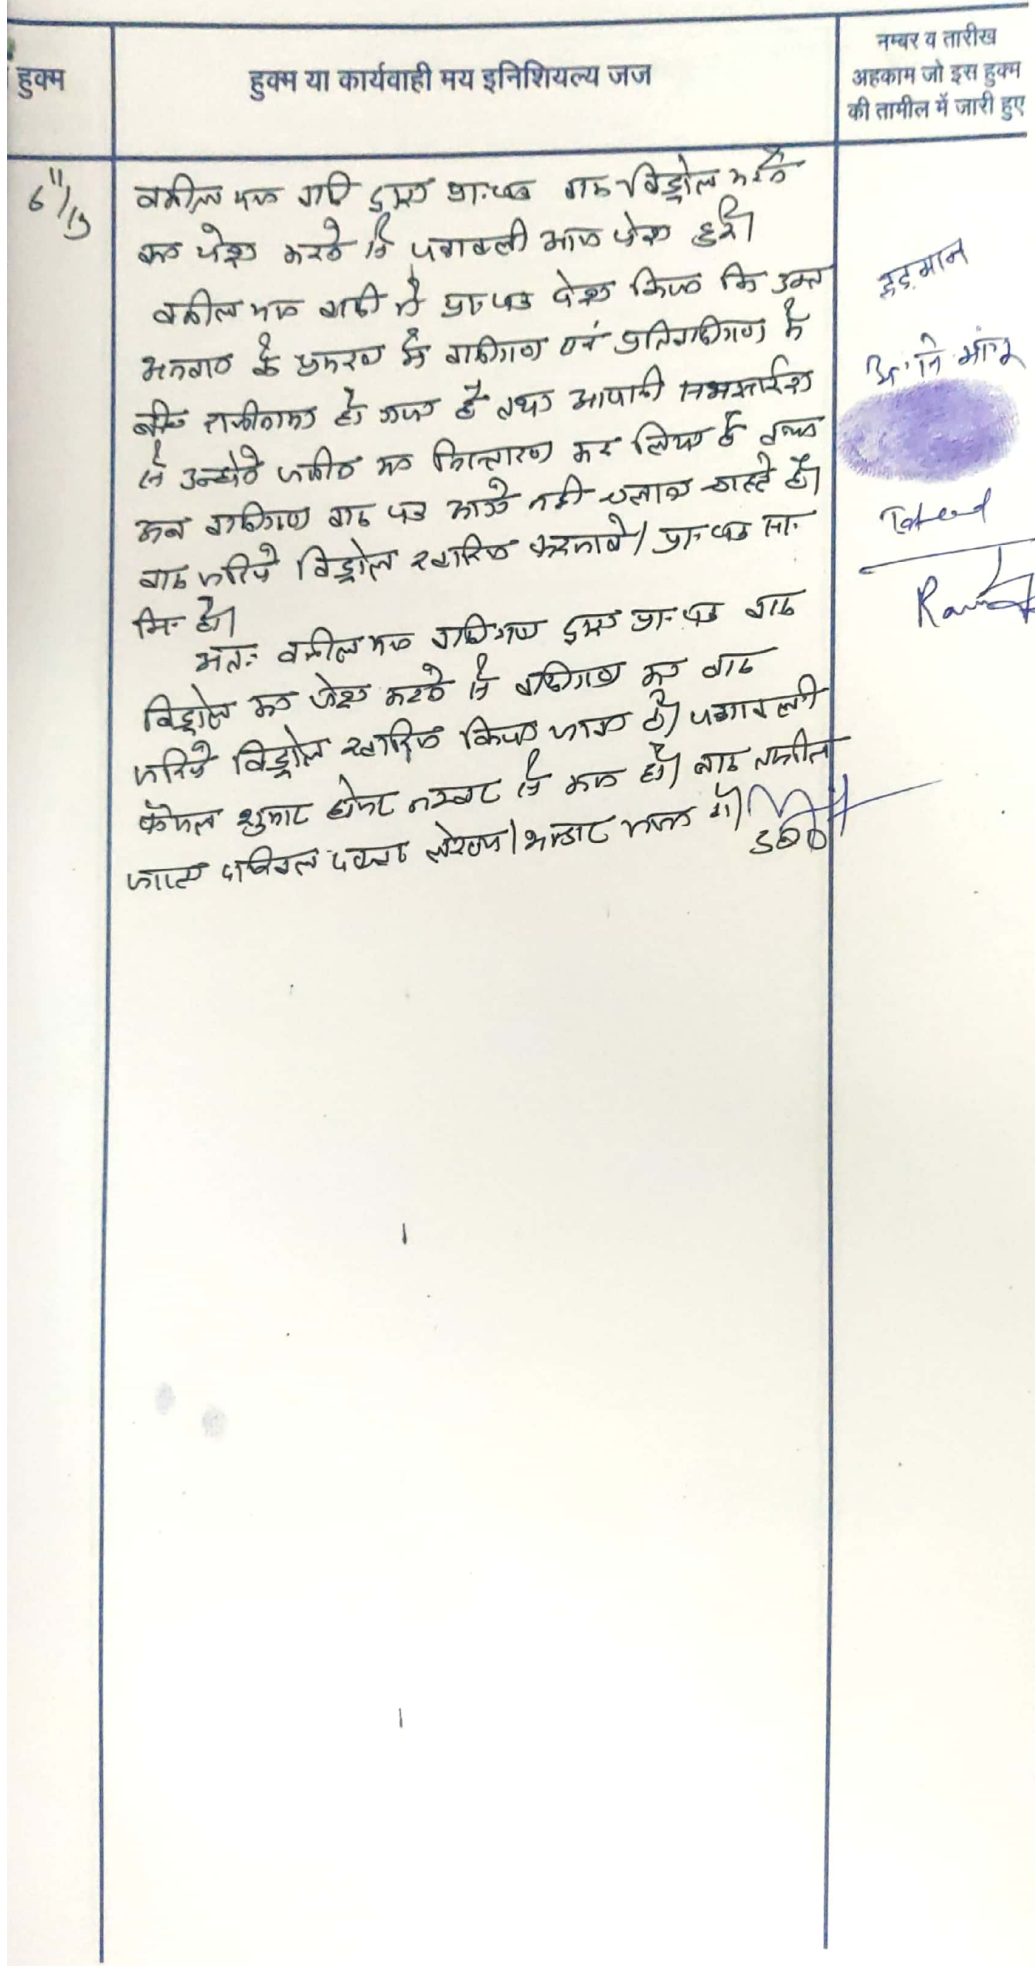 हुक्म
हुक्म या कार्यवाही मय इनिशियल्य जज
नम्बर व तारीख
अहकाम जो इस हुक्म
की तामील में जारी हुए
6/11/19
वकील मय वादी द्वारा प्रा.पत्र वाद विड्रोल करने
का पेश करने से पत्रावली आज पेश हुई।
वकील मय वादी ने प्रा.पत्र पेश किया कि उक्त
के प्रकरण में वादीगण एवं प्रतिवादीगण के
बीच राजीनामा हो गया है तथा आपसी समझाईश
से उन्होंने जमीन का निस्तारण कर लिया है तथा
अब वादीगण वाद पत्र आगे नहीं चलाना चाहते है।
वाद जरिये विड्रोल खारिज फरमावे। प्रा.पत्र सा.
मि. है।
अतः वकील मय वादीगण द्वारा प्रा.पत्र वाद
विड्रोल का पेश करने से वादीगण का वाद
जरिये विड्रोल खारिज किया जाता है। पत्रावली
फैसल शुमार होकर नम्बर से कम हो। बाद तकमील
दाखिल दफ्तर
SDO